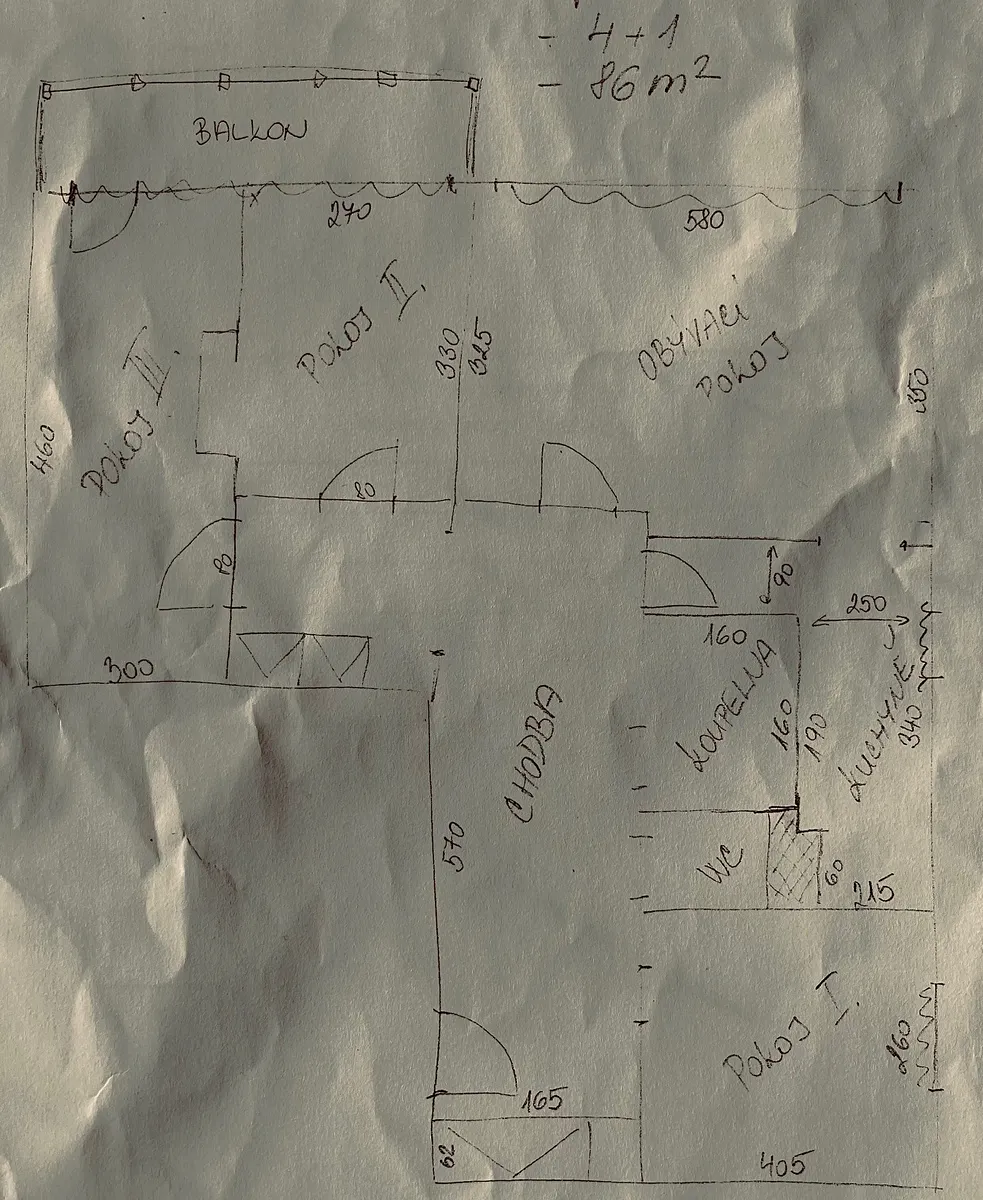 - 4+1
- 86 m²
BALKON
270
580
POKOJ II.
OBÝVACÍ
POKOJ
POKOJ III.
330
325
350
460
80
80
90
300
160
250
KOUPELNA
160
190
KUCHYNĚ
340
CHODBA
570
WC
60
215
POKOJ I.
260
165
62
405